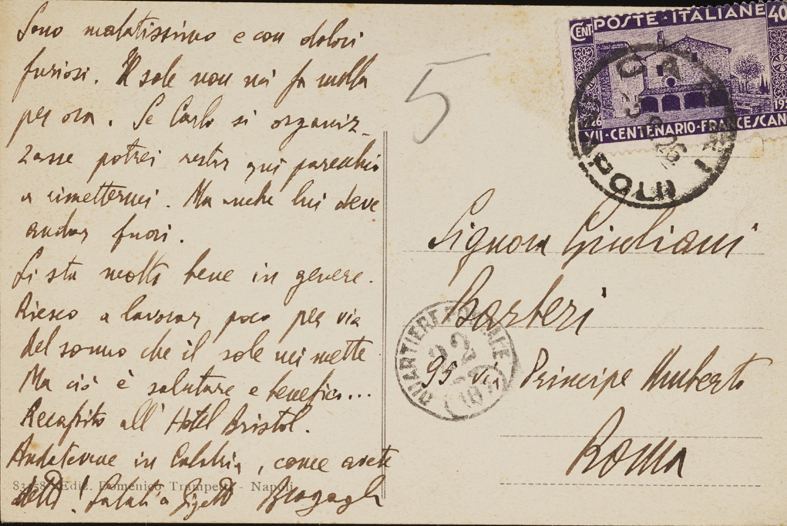 Sono malatissimo e con dolori
furiosi. Il sole non mi fa nulla
per ora. Se Carlo si organiz-
zasse potrei restar qui parecchio
a rimettermi. Ma anche lui deve
andar fuori.
Si sta molto bene in genere.
Riesco a lavorar poco per via
del sonno che il sole mi mette
Ma ciò è salutare e benefico...
Recapito all'Hotel Bristol.
Andetevene in Calabria, come avete
detto! Saluti a
83458 Ediz. Domenico Trampetti - Napoli
5
CENT POSTE · ITALIANE 40
VII · CENTENARIO · FRANCESCANO
CAPRI
25
26
NAPOLI
QUARTIERE
Signora Giuliani
Barberi
95 via Principe Umberto
Roma